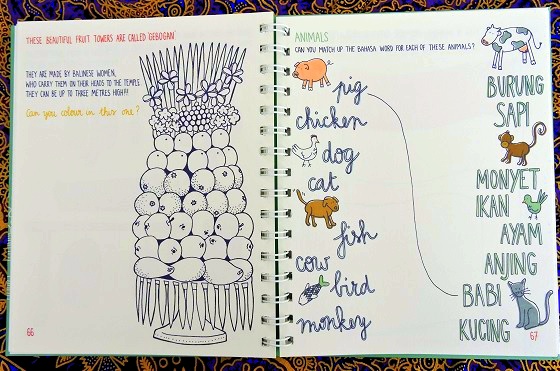 THESE BEAUTIFUL FRUIT TOWERS ARE CALLED 'GEBOGAN'
THEY ARE MADE BY BALINESE WOMEN,
WHO CARRY THEM ON THEIR HEADS TO THE TEMPLE.
THEY CAN BE UP TO THREE METRES HIGH!!!
Can you colour in this one?
66
ANIMALS
CAN YOU MATCH UP THE BAHASA WORD FOR EACH OF THESE ANIMALS?
pig
chicken
dog
cat
fish
cow
bird
monkey
BURUNG
SAPI
MONYET
IKAN
AYAM
ANJING
BABI
KUCING
67